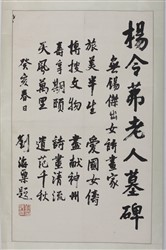 楊令茀老人墓碑
無錫傑出女詩畫家
旅美半生 愛國女儔
博搜文物 盡獻神州
壽享期頤 詩畫清流
天風萬里 遺范千秋
癸亥春日
劉海粟題